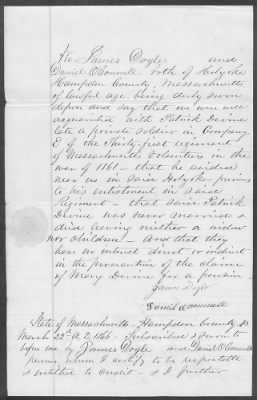 We James Doyle and
Daniel O'Connell both of Holyoke
Hampden County, Massachusetts
of lawful age being duly sworn
depose and say that we were well
acquainted with Patrick Devine
late a private soldier in Company
E of the Thirty-first regiment
of Massachusetts Volunteers in the
war of 1861 - that he resided
near us in said Holyoke previous
to his enlistment in said
Regiment - that said Patrick
Devine was never married &
died leaving neither a widow
nor children - And that they
have no interest direct or indirect
in the prosecution of the claim
of Mary Devine for a pension
James Doyle
Daniel O'Connell
State of Massachusetts - Hampden County ss
March 22 A.D. 1866 - Subscribed & sworn to
before me by James Doyle and Daniel O'Connell
persons whom I certify to be respectable
& entitled to credit - & I further